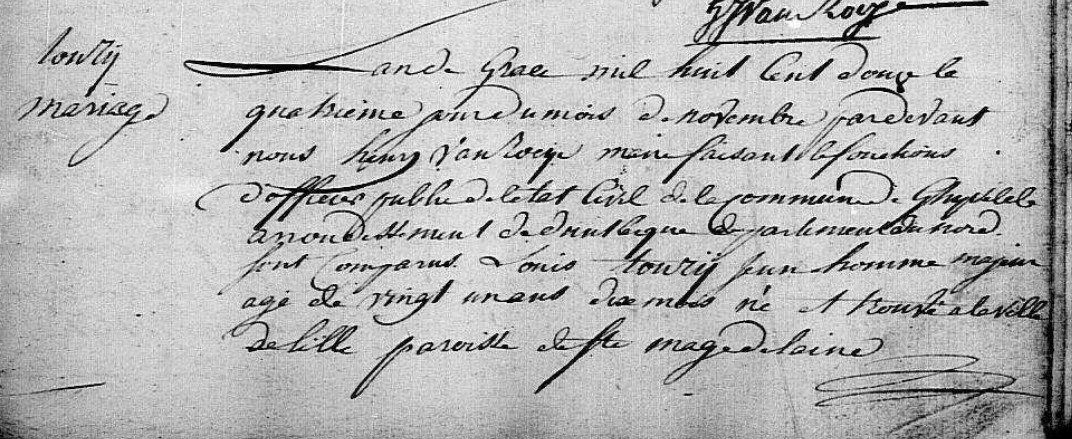 Van Rooye
touzij
mariage
Lan de Grace mil huit Cent douze le
quatrieme jour du mois de novembre pardevant
nous henry Van Rooye maire faisant les fonctions
d'officier public de letat Civil de la commune de Ghyvelde
arrondissement de dunkerque departement du nord
sont Comparus Louis touzij jeun homme majeur
agé de vingt un ans dix mois né et trouvé a la ville
de lille paroisse de ste magedelaine